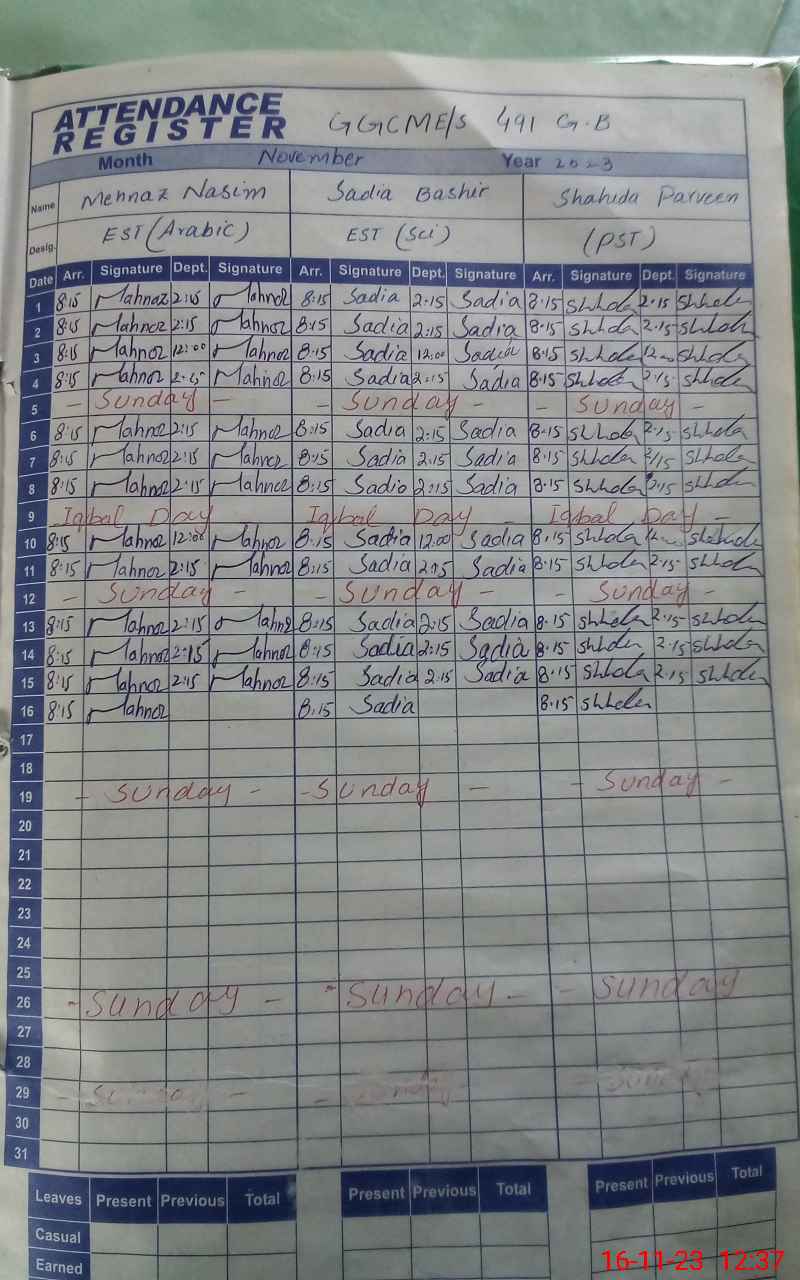 ATTENDANCE
REGISTER GGCME/S 491 G.B
Month November Year 2023
Name Mehnaz Nasim Sadia Bashir Shahida Parveen
Desig. EST (Arabic) EST (Sci) (PST)
Date Arr. Signature Dept. Signature Arr. Signature Dept. Signature Arr. Signature Dept. Signature
1 8:15 Mahnaz 2:15 Mahnoz 8:15 Sadia 2:15 Sadia 8.15 Shhda 2.15 Shhda
2 8:15 Mahnoz 2:15 Mahnoz 8:15 Sadia 2:15 Sadia 8.15 Shhda 2.15 Shhda
3 8:15 Mahnoz 12:00 Mahnoz 8:15 Sadia 12:00 Sadia 8.15 Shhda Shhda
4 8:15 Mahnoz 2:15 Mahnoz 8:15 Sadia 2:15 Sadia 8.15 Shhda 2.15 Shhda
5 - Sunday - - Sunday - - Sunday -
6 8:15 Mahnoz 2:15 Mahnoz 8:15 Sadia 2:15 Sadia 8.15 Shhda 2.15 Shhda
7 8:15 Mahnoz 2:15 Mahnoz 8:15 Sadia 2:15 Sadia 8.15 Shhda 2.15 Shhda
8 8:15 Mahnoz 2:15 Mahnoz 8:15 Sadia 2:15 Sadia 8.15 Shhda 2.15 Shhda
9 Iqbal Day Iqbal Day - Iqbal Day -
10 8:15 Mahnoz 12:00 Mahnoz 8:15 Sadia 12:00 Sadia 8.15 Shhda Shhda
11 8:15 Mahnoz 2:15 Mahnoz 8:15 Sadia 2:15 Sadia 8.15 Shhda 2.15 Shhda
12 - Sunday - - Sunday - - Sunday -
13 8:15 Mahnoz 2:15 Mahnoz 8:15 Sadia 2:15 Sadia 8.15 Shhda 2.15 Shhda
14 8:15 Mahnoz 2:15 Mahnoz 8:15 Sadia 2:15 Sadia 8.15 Shhda 2.15 Shhda
15 8:15 Mahnoz 2:15 Mahnoz 8:15 Sadia 2:15 Sadia 8.15 Shhda 2.15 Shhda
16 8:15 Mahnoz 8:15 Sadia 8.15 Shhda
17
18
19 - Sunday - - Sunday - - Sunday -
20
21
22
23
24
25
26 - Sunday - - Sunday - - Sunday
27
28
29 - Sunday - - Sunday - Sunday
30
31
Leaves Present Previous Total Present Previous Total Present Previous Total
Casual
Earned
16-11-23 12:37